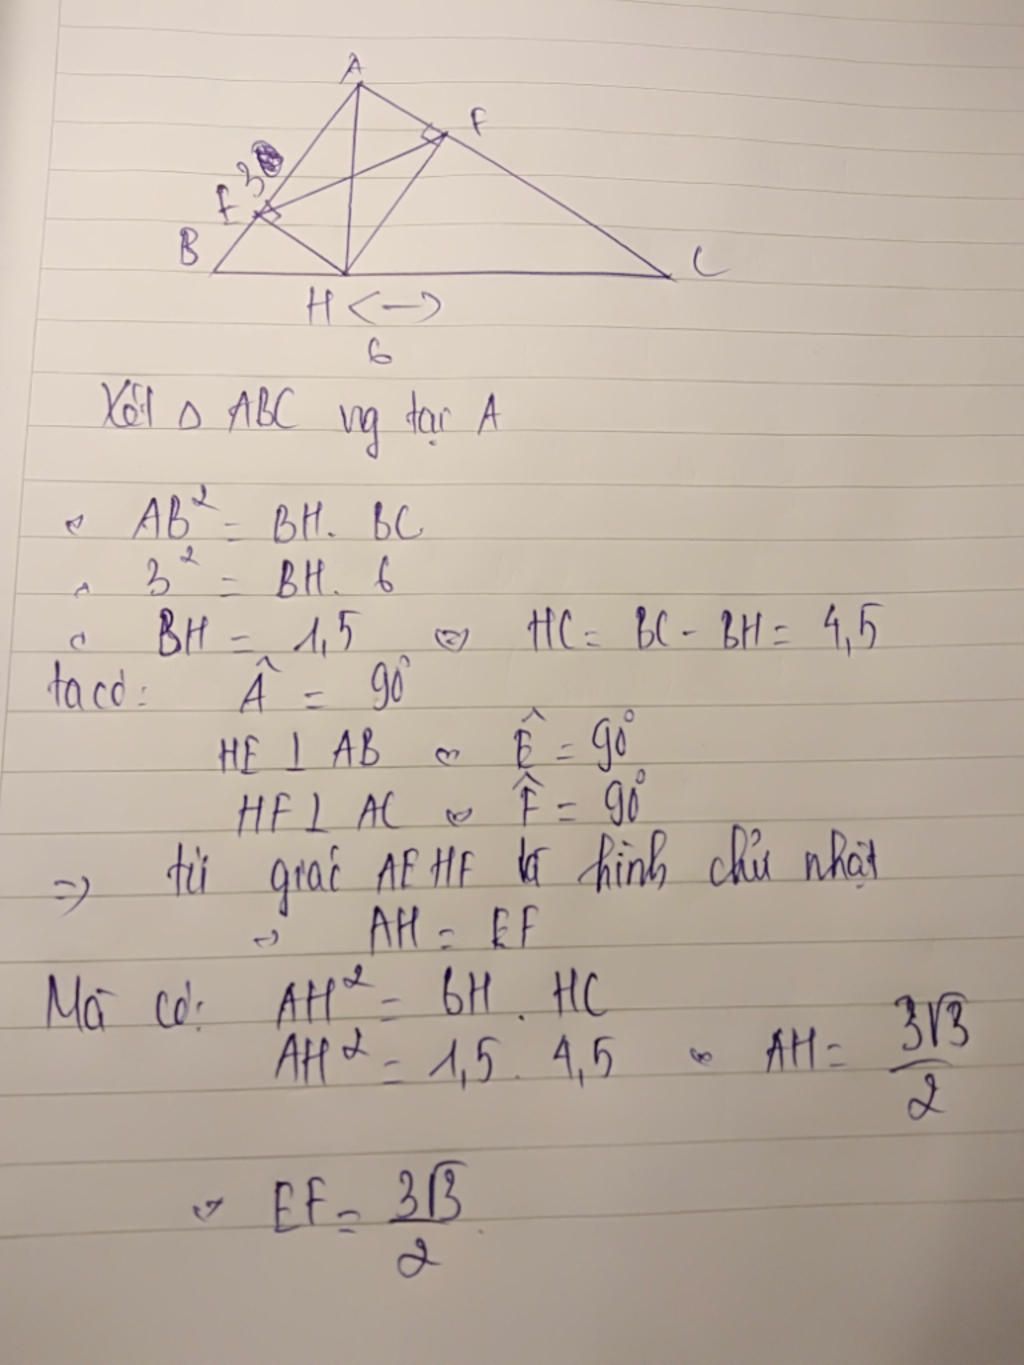 A
F
3
E
B
C
H <->
6
Xét Δ ABC vg tại A
AB² = BH. BC
3² = BH. 6
BH = 1,5 => HC = BC - BH = 4,5
ta có: Â = 90°
HE ⊥ AB => Ê = 90°
HF ⊥ AC => F̂ = 90°
=> tứ giác AEHF là hình chữ nhật
=> AH = EF
Mà có: AH² = BH . HC
AH² = 1,5 . 4,5 => AH = 3√3/2
=> EF = 3√3/2.